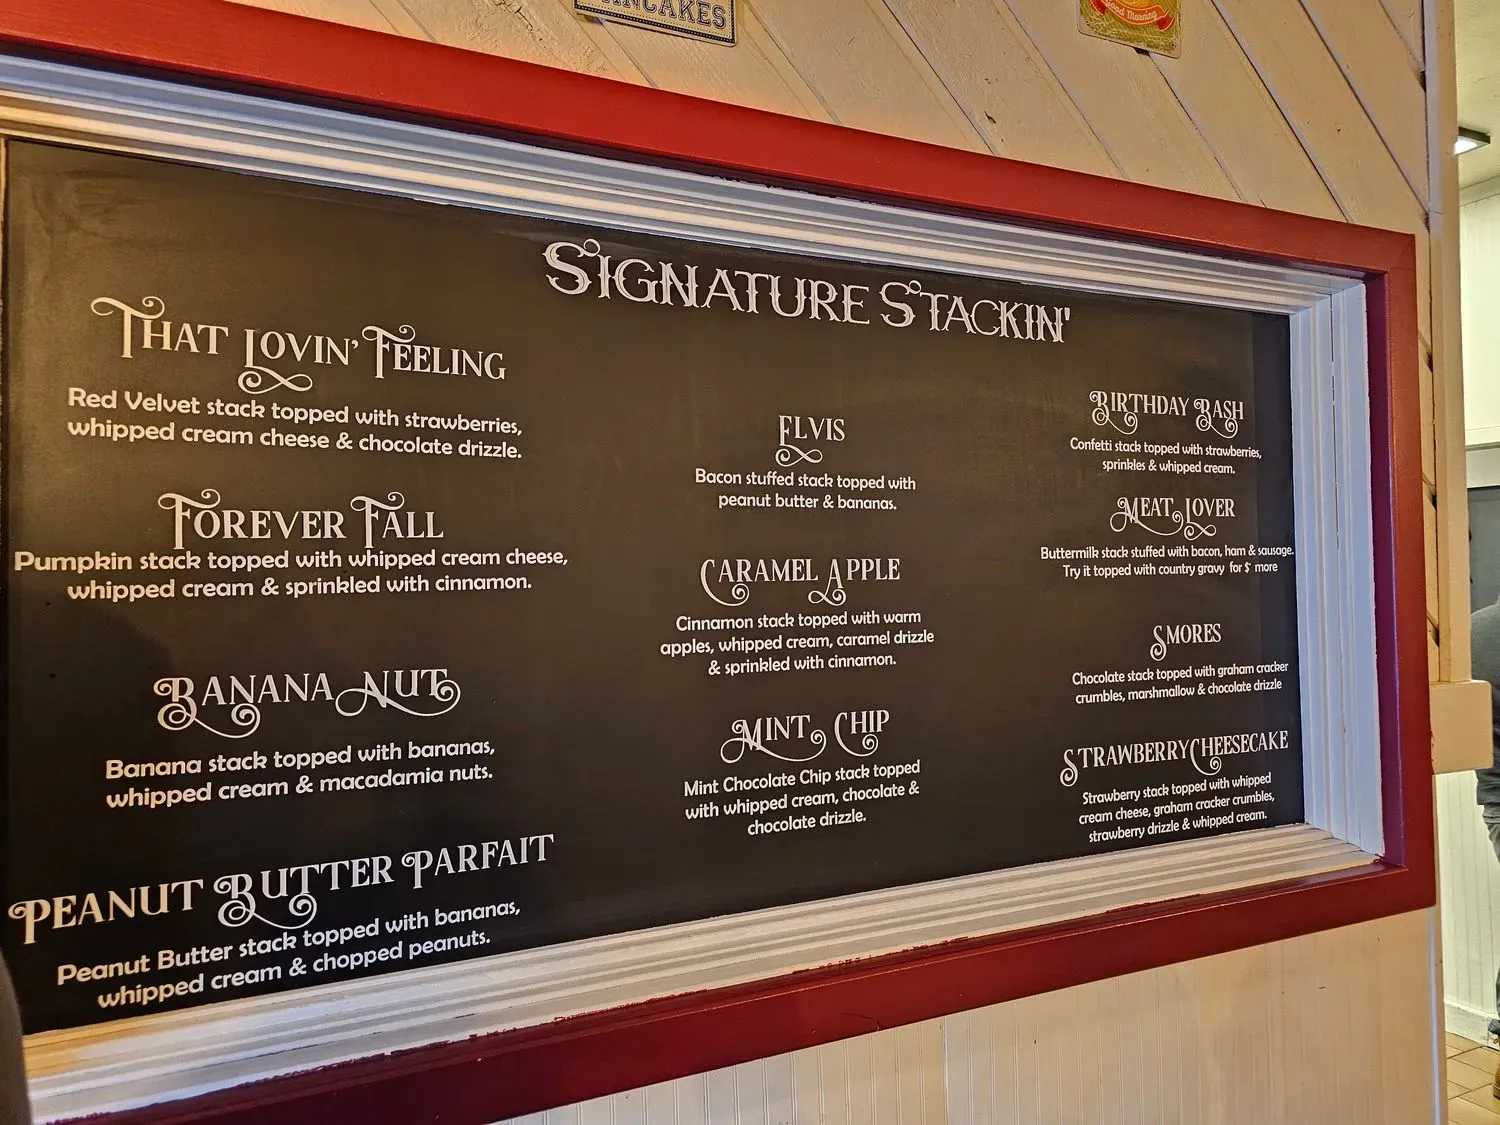 PANCAKES
Good Morning
SIGNATURE STACKIN'
THAT LOVIN' FEELING
Red Velvet stack topped with strawberries,
whipped cream cheese & chocolate drizzle.
FOREVER FALL
Pumpkin stack topped with whipped cream cheese,
whipped cream & sprinkled with cinnamon.
BANANA NUT
Banana stack topped with bananas,
whipped cream & macadamia nuts.
PEANUT BUTTER PARFAIT
Peanut Butter stack topped with bananas,
whipped cream & chopped peanuts.
ELVIS
Bacon stuffed stack topped with
peanut butter & bananas.
CARAMEL APPLE
Cinnamon stack topped with warm
apples, whipped cream, caramel drizzle
& sprinkled with cinnamon.
MINT CHIP
Mint Chocolate Chip stack topped
with whipped cream, chocolate &
chocolate drizzle.
BIRTHDAY BASH
Confetti stack topped with strawberries,
sprinkles & whipped cream.
MEAT LOVER
Buttermilk stack stuffed with bacon, ham & sausage.
Try it topped with country gravy for $ more
SMORES
Chocolate stack topped with graham cracker
crumbles, marshmallow & chocolate drizzle
STRAWBERRY CHEESECAKE
Strawberry stack topped with whipped
cream cheese, graham cracker crumbles,
strawberry drizzle & whipped cream.